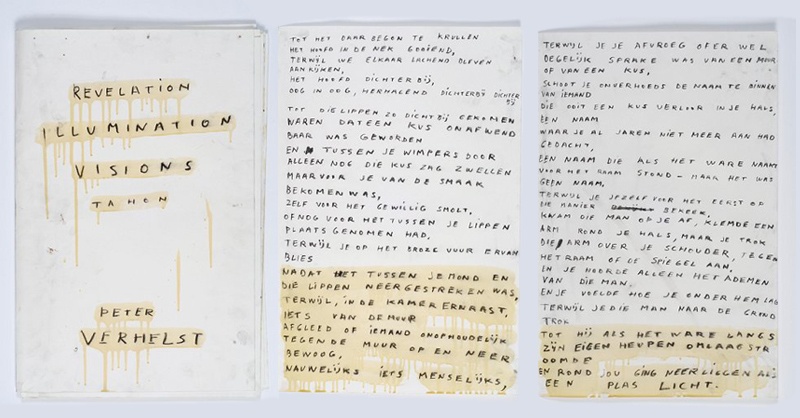 REVELATION
ILLUMINATION
VISIONS
TAHON
PETER
VERHELST
TOT HET DAAR BEGON TE KRULLEN
HET HOOFD IN DE NEK GOOIEND,
TERWIJL WE ELKAAR LACHEND BLEVEN
AANKIJKEN,
HET HOOFD DICHTERBIJ,
OOG IN OOG, HERHALEND DICHTERBIJ DICHTER
BIJ
TOT DIE LIPPEN ZO DICHTBIJ GEKOMEN
WAREN DAT EEN KUS ONAFWEND
BAAR WAS GEWORDEN
EN TUSSEN JE WIMPERS DOOR
ALLEEN NOG DIE KUS ZAG ZWELLEN
MAAR VOOR JE VAN DE SMAAK
BEKOMEN WAS,
ZELF VOOR HET GEWILLIG SMOLT,
OF NOG VOOR HET TUSSEN JE LIPPEN
PLAATS GENOMEN HAD,
TERWIJL JE OP HET BROZE VUUR ERVAN
BLIES
NADAT HET TUSSEN JE MOND EN
DIE LIPPEN NEERGESTREKEN WAS,
TERWIJL, IN DE KAMER ERNAAST,
IETS VAN DE MUUR
AFGLEED OF IEMAND ONOPHOUDELIJK
TEGEN DE MUUR OP EN NEER
BEWOOG,
NAUWELIJKS IETS MENSELIJKS,
TERWIJL JE JE AFVROEG OF ER WEL
DEGELIJK SPRAKE WAS VAN EEN MUUR
OF VAN EEN KUS,
SCHOOT JE ONVERHOEDS DE NAAM TE BINNEN
VAN IEMAND
DIE OOIT EEN KUS VERLOOR IN JE HALS,
EEN NAAM
WAAR JE AL JAREN NIET MEER AAN HAD
GEDACHT,
EEN NAAM DIE ALS HET WARE NAAM
VOOR HET RAAM STOND - MAAR HET WAS
GEEN NAAM,
TERWIJL JE JEZELF VOOR HET EERST OP
DIE MANIER BEKEEK,
KWAM DIE MAN OP JE AF, KLEMDE EEN
ARM ROND JE HALS, MAAR JE TROK
DIE ARM OVER JE SCHOUDER, TEGEN
HET RAAM OF DE SPIEGEL AAN,
EN JE HOORDE ALLEEN HET ADEMEN
VAN DIE MAN
EN JE VOELDE HOE JE ONDER HEM LAG
TERWIJL JE DIE MAN NAAR DE GROND
TROK
TOT HIJ ALS HET WARE LANGS
ZIJN EIGEN HEUPEN OMLAAG STR
OOMDE
EN ROND JOU GING NEERLIGGEN ALS
EEN PLAS LICHT.